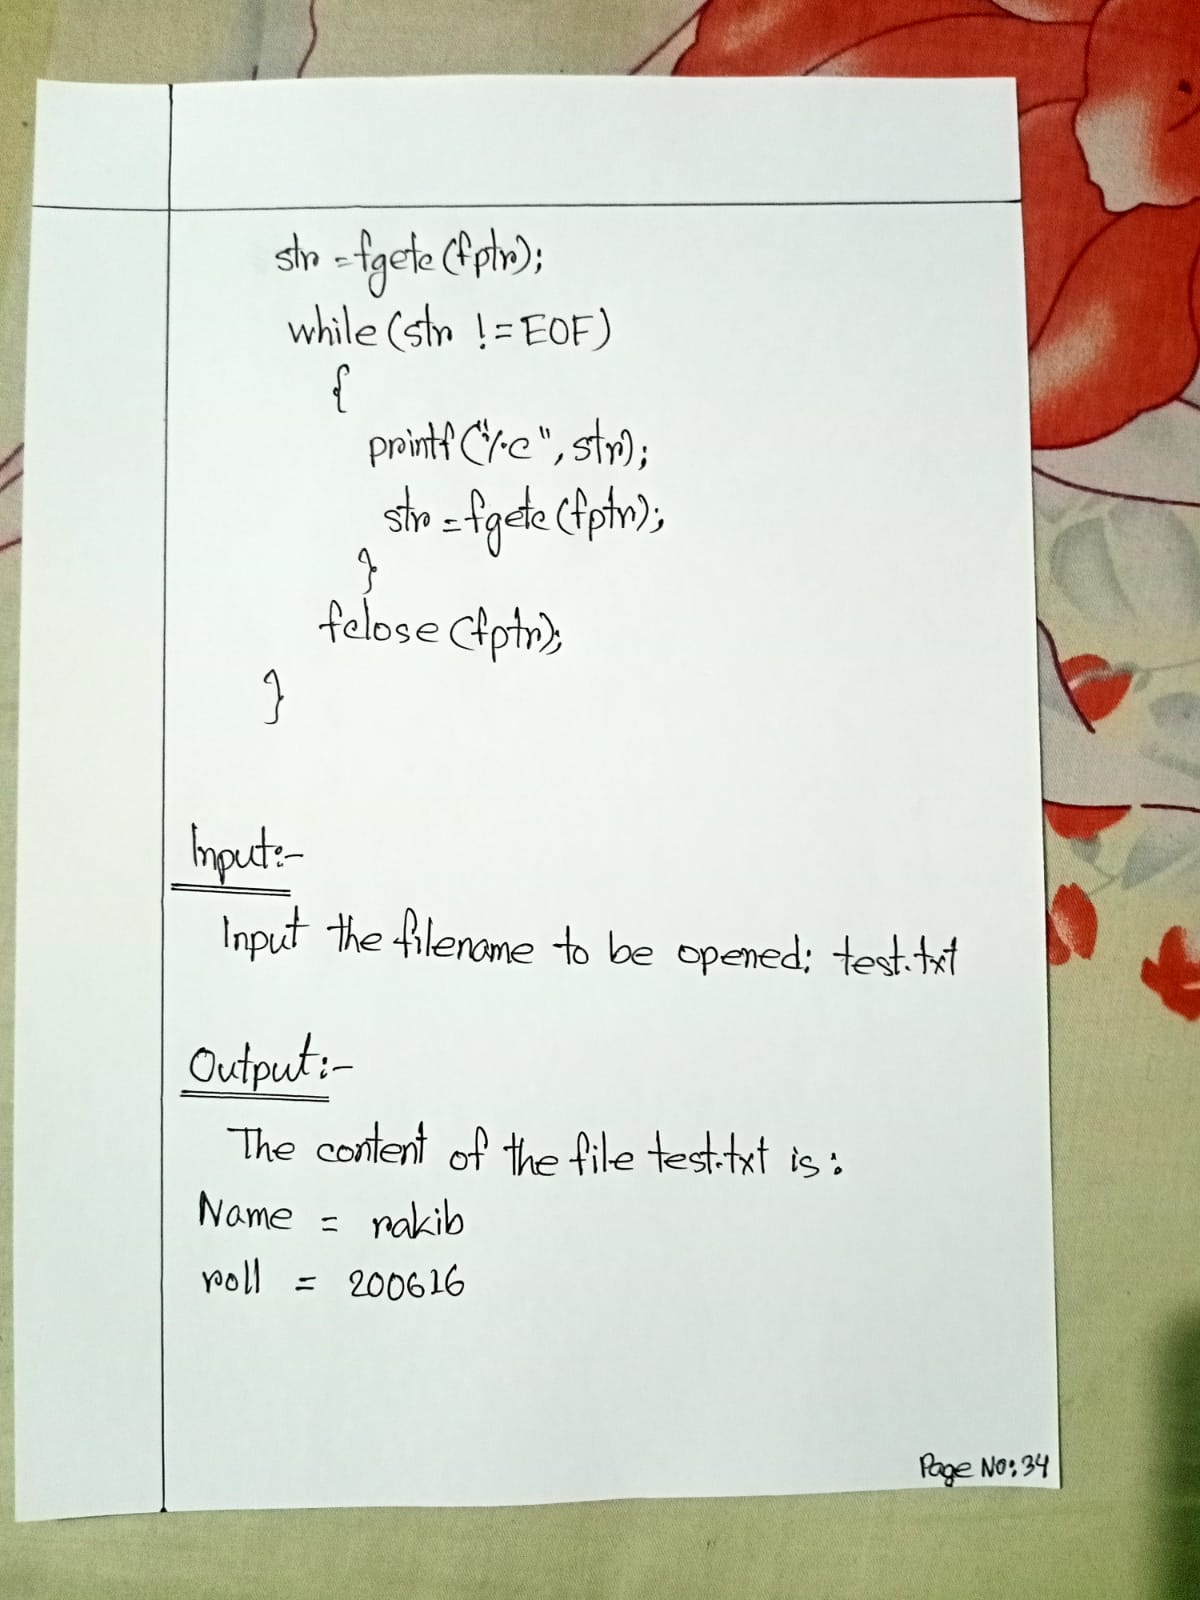 str = fgetc(fptr);
while (str != EOF)
{
printf("%c", str);
str = fgetc(fptr);
}
fclose(fptr);
}
Input:-
Input the filename to be opened: test.txt
Output:-
The content of the file test.txt is:
Name = rakib
roll = 200616
Page No: 34